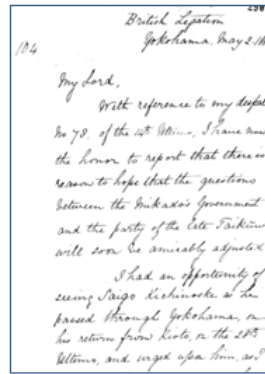 298
British Legation
Yokohama, May 2. 18
104
My Lord,
With reference to my despat
No 78. of the 14th Ultimo, I have now
the honor to report that there is
reason to hope that the questions
between the Mikado's Government
and the party of the late Taikûn
will soon be amicably adjusted
I had an opportunity of
seeing Saigo Kichinoske as he
passed through Yokohama, on
his return from Kioto, on the 28th
Ultimo, and urged upon him, as I